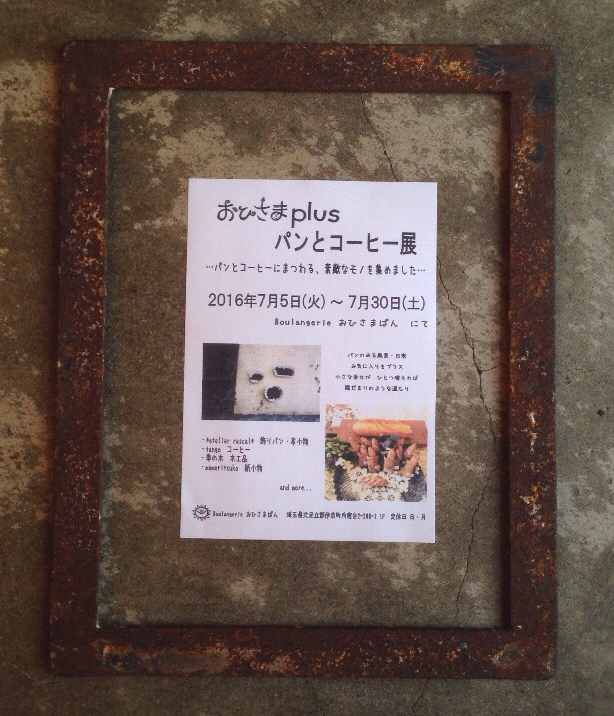 おひさまplus
パンとコーヒー展
…パンとコーヒーにまつわる、素敵なモノを集めました…
2016年7月5日(火) ～ 7月30日(土)
Boulangerie おひさまぱん にて
パンのある風景・日常
お気に入りをプラス
小さな幸せが ひとつ増えれば
陽だまりのような温もり
・*atelier rascal* 飾りパン・革小物
・tango コーヒー
・季の木 木工品
・nanoritsuko 紙小物
and more...
Boulangerie おひさまぱん 埼玉県北足立郡伊奈町内宿台2-208-1 1F 定休日 日・月